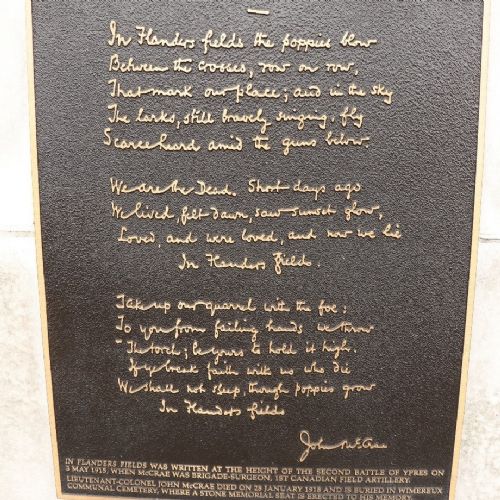 In Flanders fields the poppies blow
Between the crosses, row on row,
That mark our place; and in the sky
The larks, still bravely singing, fly
Scarce heard amid the guns below.
We are the Dead. Short days ago
We lived, felt dawn, saw sunset glow,
Loved, and were loved, and now we lie
In Flanders fields.
Take up our quarrel with the foe:
To you from failing hands we throw
The torch; be yours to hold it high.
If ye break faith with us who die
We shall not sleep, though poppies grow
In Flanders fields
John McCrae
IN FLANDERS FIELDS WAS WRITTEN AT THE HEIGHT OF THE SECOND BATTLE OF YPRES ON
3 MAY 1915, WHEN McCRAE WAS BRIGADE-SURGEON, 1ST CANADIAN FIELD ARTILLERY.
LIEUTENANT-COLONEL JOHN McCRAE DIED ON 28 JANUARY 1918 AND IS BURIED IN WIMEREUX
COMMUNAL CEMETERY, WHERE A STONE MEMORIAL SEAT IS ERECTED TO HIS MEMORY.